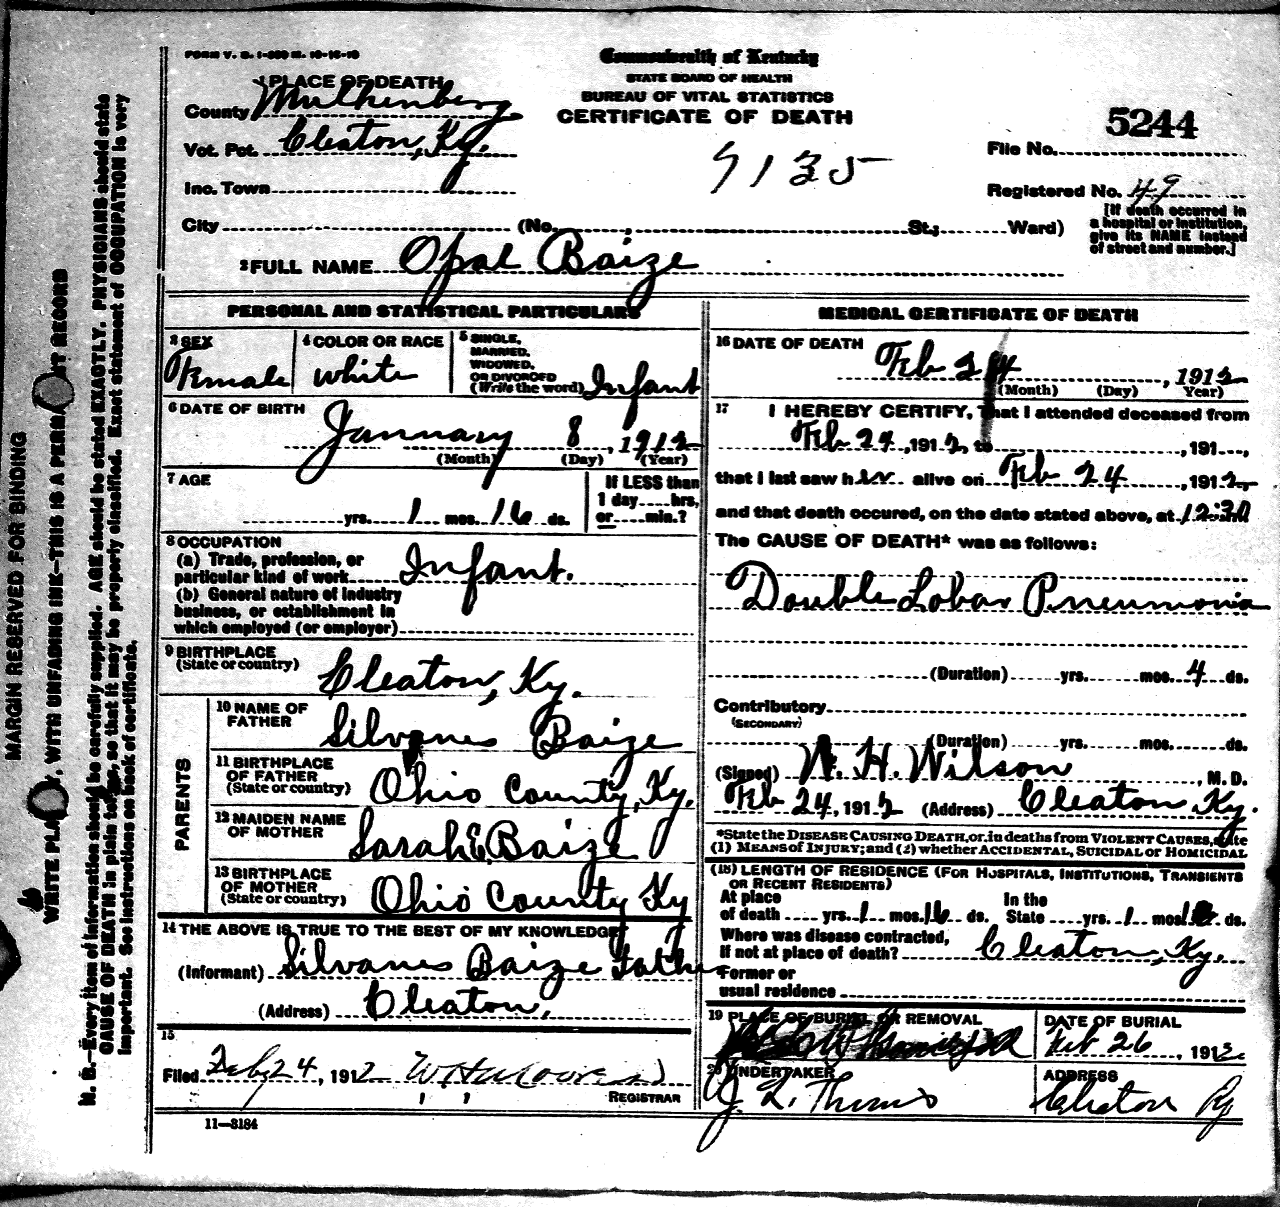 FORM V. S. 1-350 M. 10-16-10
Commonwealth of Kentucky
STATE BOARD OF HEALTH
BUREAU OF VITAL STATISTICS
CERTIFICATE OF DEATH
1 PLACE OF DEATH
County Muhlenberg
Vot. Pct. Cleaton, Ky.
Inc. Town
7135
5244
File No.
Registered No. 49
City (No. , St.; Ward)
[If death occurred in
a hospital or institution,
give its NAME instead
of street and number.]
2 FULL NAME Opal Baize
PERSONAL AND STATISTICAL PARTICULARS
3 SEX
Female
4 COLOR OR RACE
White
5 SINGLE,
MARRIED,
WIDOWED,
OR DIVORCED
(Write the word) Infant
6 DATE OF BIRTH
January 8, 1912
(Month) (Day) (Year)
7 AGE
yrs. 1 mos. 16 ds.
If LESS than
1 day hrs,
or min.?
8 OCCUPATION
(a) Trade, profession, or
particular kind of work Infant.
(b) General nature of industry
business, or establishment in
which employed (or employer)
9 BIRTHPLACE
(State or country) Cleaton, Ky.
PARENTS
10 NAME OF
FATHER Silvanes Baize
11 BIRTHPLACE
OF FATHER
(State or country) Ohio County, Ky.
12 MAIDEN NAME
OF MOTHER Sarah E. Baize
13 BIRTHPLACE
OF MOTHER
(State or country) Ohio County Ky
14 THE ABOVE IS TRUE TO THE BEST OF MY KNOWLEDGE
(Informant) Silvanes Baize Father
(Address) Cleaton,
15
Filed Feb 24, 1912
REGISTRAR
11—3184
MEDICAL CERTIFICATE OF DEATH
16 DATE OF DEATH
Feb 24, 1912
(Month) (Day) (Year)
17 I HEREBY CERTIFY, That I attended deceased from
Feb 24, 1912, to , 191 ,
that I last saw her alive on Feb 24, 1912,
and that death occured, on the date stated above, at 12:30
The CAUSE OF DEATH* was as follows:
Double Lobar Pneumonia
(Duration) yrs. mos. 4 ds.
Contributory
(SECONDARY)
(Duration) yrs. mos. ds.
(Signed) W. H. Wilson, M. D.
Feb 24, 1912 (Address) Cleaton Ky.
*State the DISEASE CAUSING DEATH, or, in deaths from VIOLENT CAUSES, state
(1) MEANS of INJURY; and (2) whether ACCIDENTAL, SUICIDAL or HOMICIDAL
(18) LENGTH OF RESIDENCE (FOR HOSPITALS, INSTITUTIONS, TRANSIENTS
OR RECENT RESIDENTS)
At place
of death yrs. 1 mos. 16 ds.
In the
State yrs. 1 mos. 16 ds.
Where was disease contracted,
If not at place of death? Cleaton, Ky.
Former or
usual residence
19 PLACE OF BURIAL OR REMOVAL
DATE OF BURIAL
Feb 26, 1912
20 UNDERTAKER
ADDRESS
Cleaton Ky
MARGIN RESERVED FOR BINDING
WRITE PLAINLY, WITH UNFADING INK—THIS IS A PERMANENT RECORD
N. B.—Every item of information should be carefully supplied. AGE should be stated EXACTLY. PHYSICIANS should state
CAUSE OF DEATH in plain terms, so that it may be properly classified. Exact statement of OCCUPATION is very
important. See instructions on back of certificate.